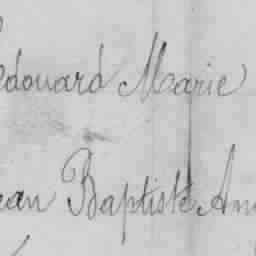 Edouard Marie
ean Baptiste An